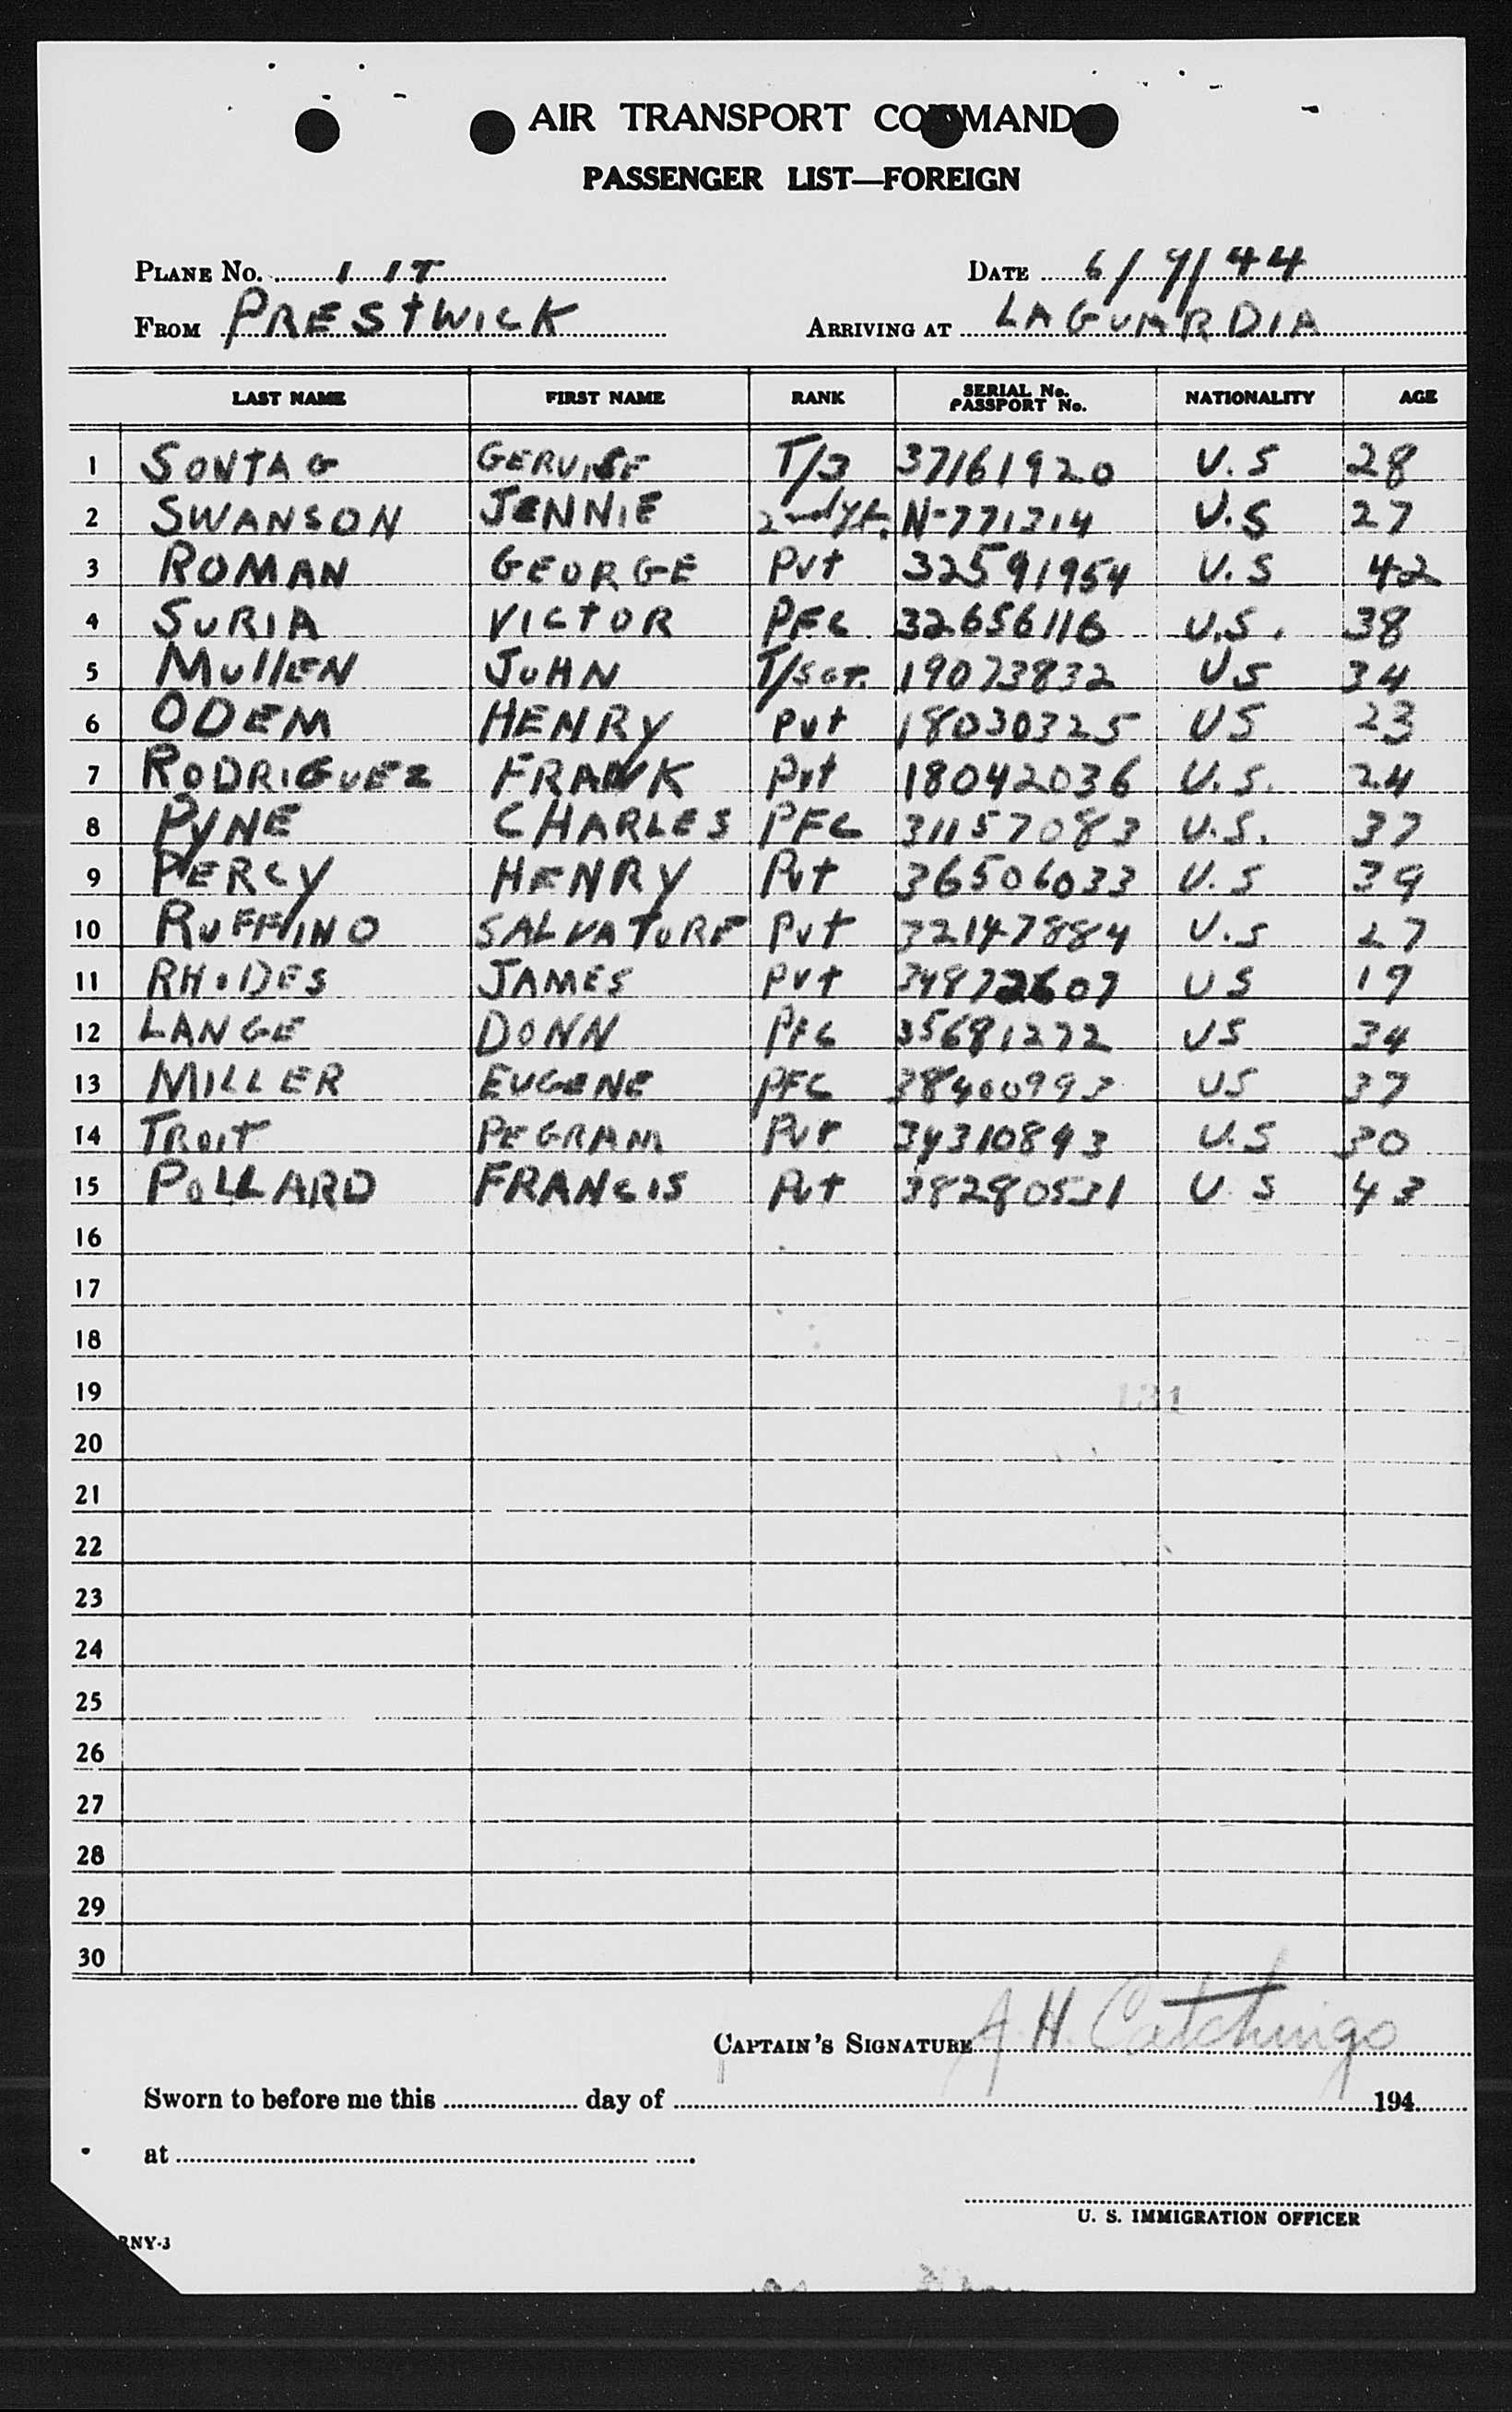 AIR TRANSPORT COMMAND
PASSENGER LIST—FOREIGN
PLANE No. 1 1T DATE 6/9/44
FROM PRESTWICK ARRIVING AT LAGUARDIA
LAST NAME FIRST NAME RANK SERIAL No. PASSPORT No. NATIONALITY AGE
1 SONTAG GERVISE T/3 37161920 U.S 28
2 SWANSON JENNIE 2nd Lt. N-771214 U.S 27
3 ROMAN GEORGE Pvt 32591954 U.S 42
4 SURIA VICTOR PFC 32656116 U.S. 38
5 MullEN JOHN T/SGT. 19073832 US 34
6 ODEM HENRY Pvt 18030325 US 23
7 RODRIGUEZ FRANK Pvt 18042036 U.S. 24
8 PYNE CHARLES PFC 31157083 U.S. 37
9 PERCY HENRY Pvt 36506033 U.S 39
10 RUFFINO SALVATORE Pvt 32147884 U.S 27
11 RHODES JAMES Pvt 34872607 US 19
12 LANGE DONN PFC 35681272 US 34
13 MILLER EUGENE PFC 38400993 US 37
14 TROIT PEGRAM Pvt 34310893 U.S 30
15 POLLARD FRANCIS Pvt 38280531 U S 43
16
17
18
19
131
20
21
22
23
24
25
26
27
28
29
30
CAPTAIN'S SIGNATURE A.H. Catchings
Sworn to before me this day of 194
at
U. S. IMMIGRATION OFFICER
RNY-3